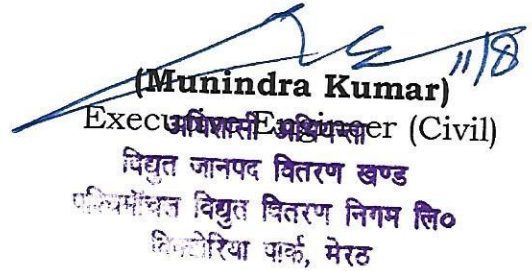 11/8
(Munindra Kumar)
Executive Engineer (Civil)
अधिशासी अभियन्ता
विद्युत जानपद वितरण खण्ड
पश्चिमाँचल विद्युत वितरण निगम लि०
विक्टोरिया पार्क, मेरठ